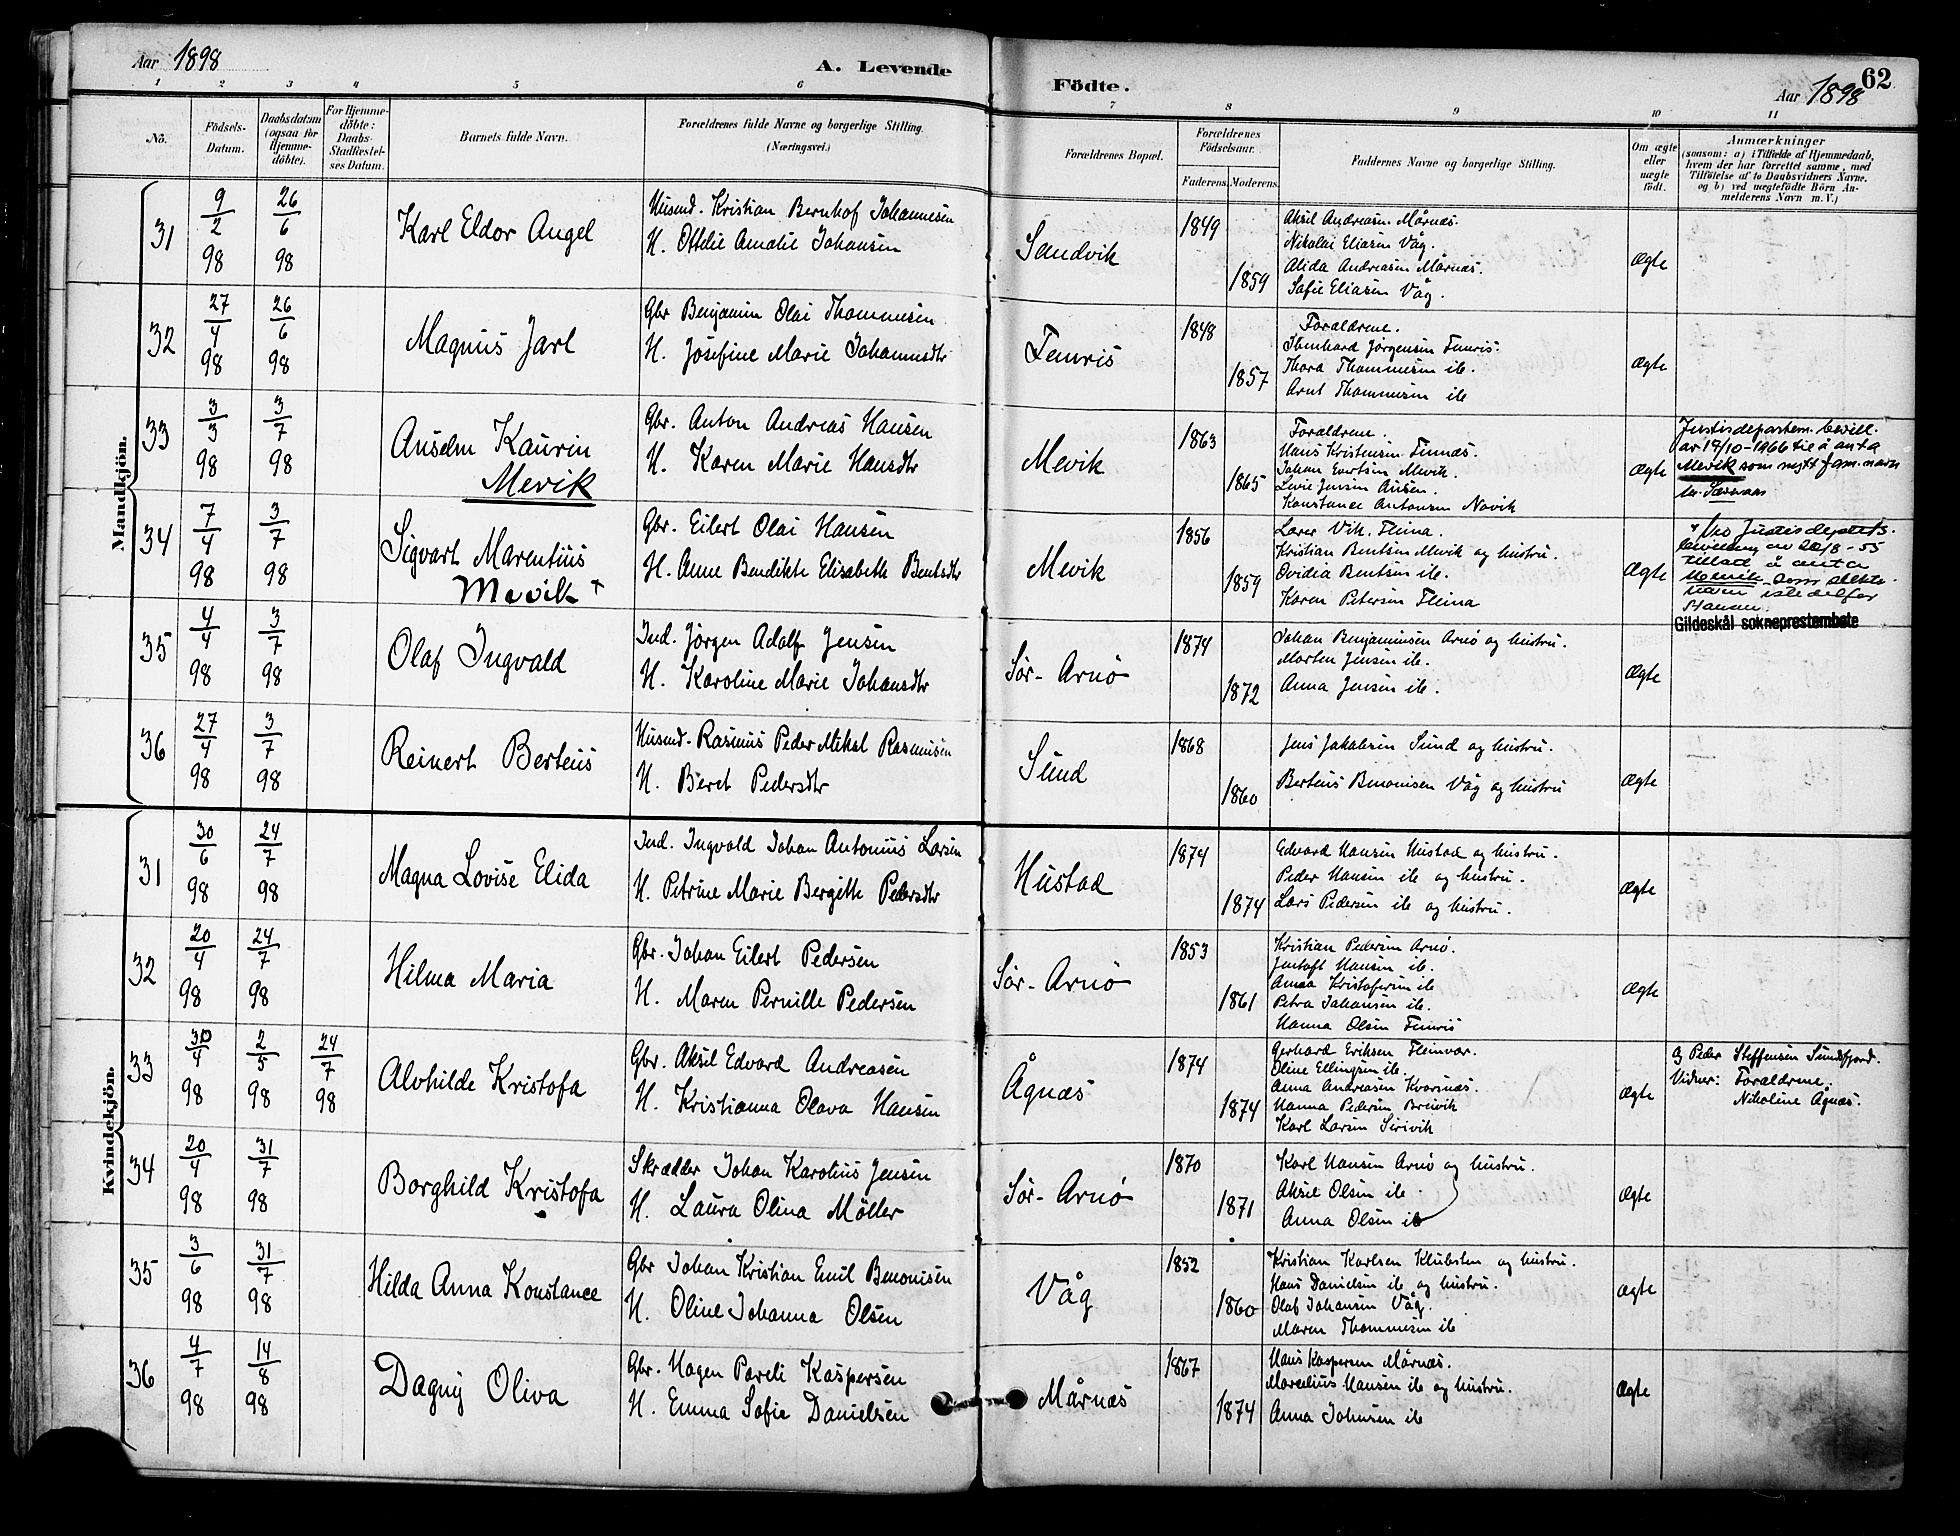 Aar 1898
A. Levende
Födte.
62
Aar 1898
1 2 3 4 5 6 7 8 9 10 11
No.
Födsels-Datum.
Daabsdatum (ogsaa for Hjemme-döbte).
For Hjemme-döbte: Daabs-Stadfæstel-ses Datum.
Barnets fulde Navn.
Forældrenes fulde Navne og borgerlige Stilling. (Næringsvei.)
Forældrenes Bopæl.
Forældrenes Födselsaar.
Faderens. Moderens.
Faddernes Navne og borgerlige Stilling.
Om ægte eller uægte födt.
Anmærkninger
(saasom: a) i Tilfælde af Hjemmedaab,
hvem der har forrettet samme, med
Tilföielse af to Daabsvidners Navne.
og b) ved uægtefödte Börn An-
melderens Navn m.V.)
Mandkjön.
31 9/2 98 26/6 98 Karl Eldor Angel
Husmd. Kristian Bernhof Johannesen
H. Ottelie Amalie Johansen
Sandvik 1849 1859
Aksel Andreasen Mårnæs.
Nikolai Eliasen Våg.
Alida Andreasen Mårnæs.
Sofie Eliasen Våg.
Ægte
32 27/4 98 26/6 98 Magnus Jarl
Gbr Benjamin Olai Thommesen
H. Josefine Marie Johannsdtr
Femris 1848 1857
Forældrene.
Ibenhard Jørgensen Femris.
Thora Thommesen ib.
Arnt Thommesen ib
Ægte
33 3/3 98 3/7 98 Anselm Kaurin
Mevik
Gbr. Anton Andreas Hansen
H. Karen Marie Hansdtr
Mevik 1863 1865
Forældrene.
Hans Kristensen Finnæs.
Johan Evertsen Mevik.
Levie Jensen
Konstance Antonsen Novik
Ægte
Justisdepartem. bevill.
av 17/10-1966 til å anta
Mevik som nytt fam.navn
34 7/4 98 3/7 98 Sigvart Marentius
Mevik +
Gbr. Eilert Olai Hansen
H. Anne Bendikte Elisabeth Bentsdtr
Mevik 1856 1859
Lærer Vik, Fleina.
Kristian Bentsen Mevik og hustru.
Ovidia Bentsen ib.
Karen Petersen Fleina
Ægte
+ Ved Justisdeptets
bevilling av 20/8-55
tillatt å anta
Mevik som slekts-
navn istedetfor
Hansen.
Gildeskål sokneprestembete
35 4/4 98 3/7 98 Olaf Ingvald
Ind. Jørgen Adolf Jensen
H. Karoline Marie Johansdtr
Sør-Arnø 1874 1872
Johan Benjaminsen Arnø og hustru.
Morten Jensen ib.
Anna Jensen ib.
Ægte
36 27/4 98 3/7 98 Reinert Berteus
Husmd. Rasmus Peder Mikal Rasmusen
H. Beret Pedersdtr
Sund 1868 1860
Jens Jakobsen Sund og hustru.
Berteus Benonisen Våg og hustru
Ægte
Kvindekjön.
31 30/6 98 24/7 98 Magna Lovise Elida
Ind. Ingvald Johan Antonius Larsen
H. Petrine Marie Bergitte Pedersdtr
Hustad 1874 1874
Edvard Hansen Hustad og hustru.
Peder Hansen ib og hustru.
Lars Pedersen ib og hustru.
Ægte
32 20/4 98 24/7 98 Hilma Maria
Gbr. Johan Eilert Pedersen
H. Maren Pernille Pedersen
Sør-Arnø 1853 1861
Kristian Pedersen Arnø.
Jentoft Hansen ib.
Anna Kristofersen ib
Petra Johansen ib.
Hanna Olsen Femris
Ægte
33 30/4 98 2/5 98 24/7 98 Alvhilde Kristofa
Gbr. Aksel Edvard Andreasen
H. Kristianna Olava Hansen
Ågnæs 1874 1874
Gerhard Eriksen Fleinvær.
Oline Ellingsen ib.
Anna Andreasen Kvarsnæs.
Hanna Pedersen Breivik
Karl Larsen Sirivik
Ægte
Peder Steffensen Sundsfjord.
Vidner: Forældrene.
Nikoline Ågnæs.
34 20/4 98 31/7 98 Borghild Kristofa
Skrædder Johan Karolius Jensen
H. Laura Olina Møller
Sør-Arnø 1870 1871
Karl Hansen Arnø og hustru.
Aksel Olsen ib
Anna Olsen ib
Ægte
35 3/6 98 31/7 98 Hilda Anna Konstance
Gbr Johan Kristian Emil Benonisen
H. Oline Johanna Olsen
Våg 1852 1860
Kristian Karlsen Klubsten og hustru.
Hans Danielsen ib og hustru.
Olaf Johansen Våg.
Maren Thommesen ib
Ægte
36 4/7 98 14/8 98 Dagny Oliva
Gbr. Hagen Pareli Kaspersen
H. Emma Sofie Danielsen
Mårnæs 1867 1874
Hans Kaspersen Mårnæs.
Marcelius Hansen ib og hustru.
Anna Johnsen ib
Ægte